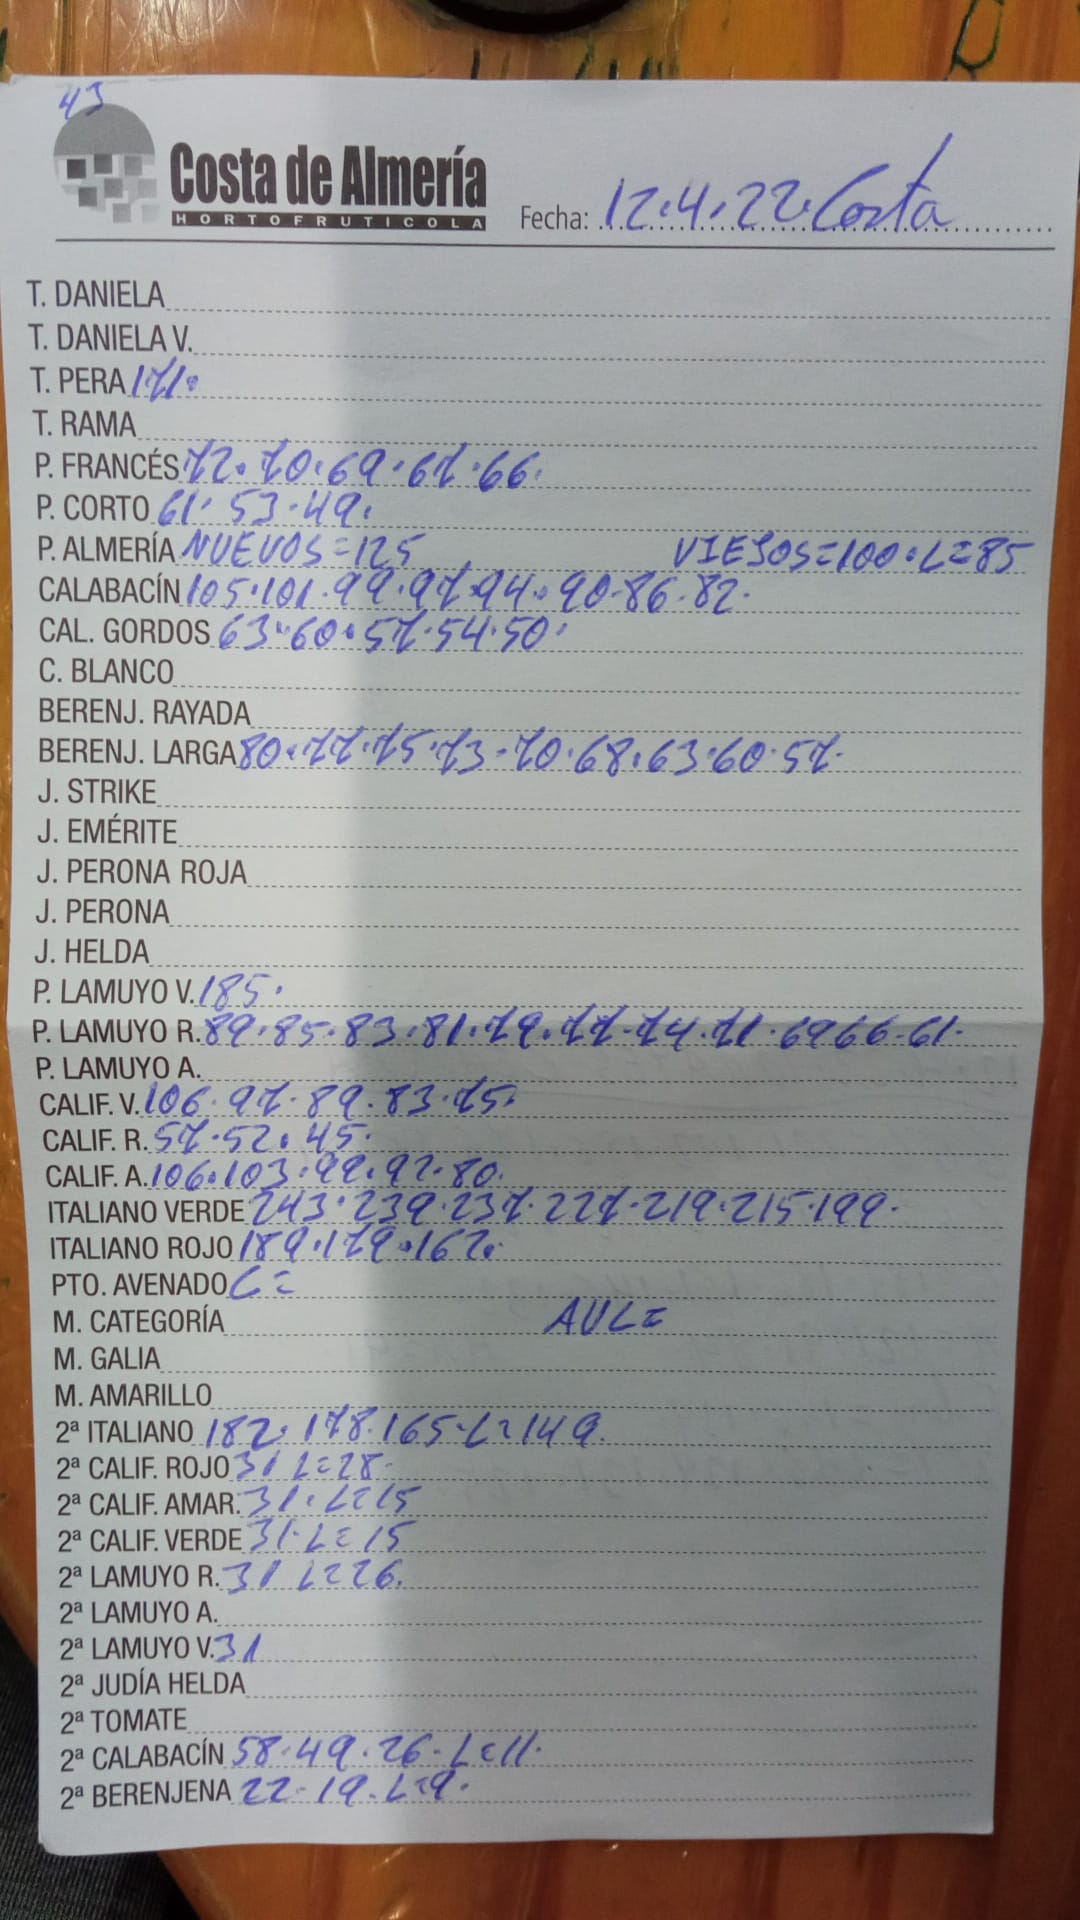 43
Costa de Almería
HORTOFRUTICOLA
Fecha: 12.4.22. Costa
T. DANIELA
T. DANIELA V.
T. PERA 171.
T. RAMA
P. FRANCÉS 72. 70. 69. 67. 66.
P. CORTO 61. 53. 49.
P. ALMERÍA NUEVOS=125 VIEJOS=100. L=85
CALABACÍN 105.101.99.97.94.90.86.82.
CAL. GORDOS 63.60.57.54.50.
C. BLANCO
BERENJ. RAYADA
BERENJ. LARGA 80.77.75.73.70.68.63.60.57.
J. STRIKE
J. EMÉRITE
J. PERONA ROJA
J. PERONA
J. HELDA
P. LAMUYO V. 185.
P. LAMUYO R. 89.85.83.81.79.77.74.71.69 66.61.
P. LAMUYO A.
CALIF. V. 106.97.89.83.75.
CALIF. R. 57.52.45.
CALIF. A. 106.103.99.92.80.
ITALIANO VERDE 243.239.237.227.219.215.199.
ITALIANO ROJO 189.179.167.
PTO. AVENADO C=
M. CATEGORÍA AVL=
M. GALIA
M. AMARILLO
2ª ITALIANO 182.178.165.L=149.
2ª CALIF. ROJO 31 L=28.
2ª CALIF. AMAR. 31. L=15
2ª CALIF. VERDE 31. L=15
2ª LAMUYO R. 31 L=26.
2ª LAMUYO A.
2ª LAMUYO V. 31
2ª JUDÍA HELDA
2ª TOMATE
2ª CALABACÍN 58.49.26. L=11.
2ª BERENJENA 22.19. L=9.